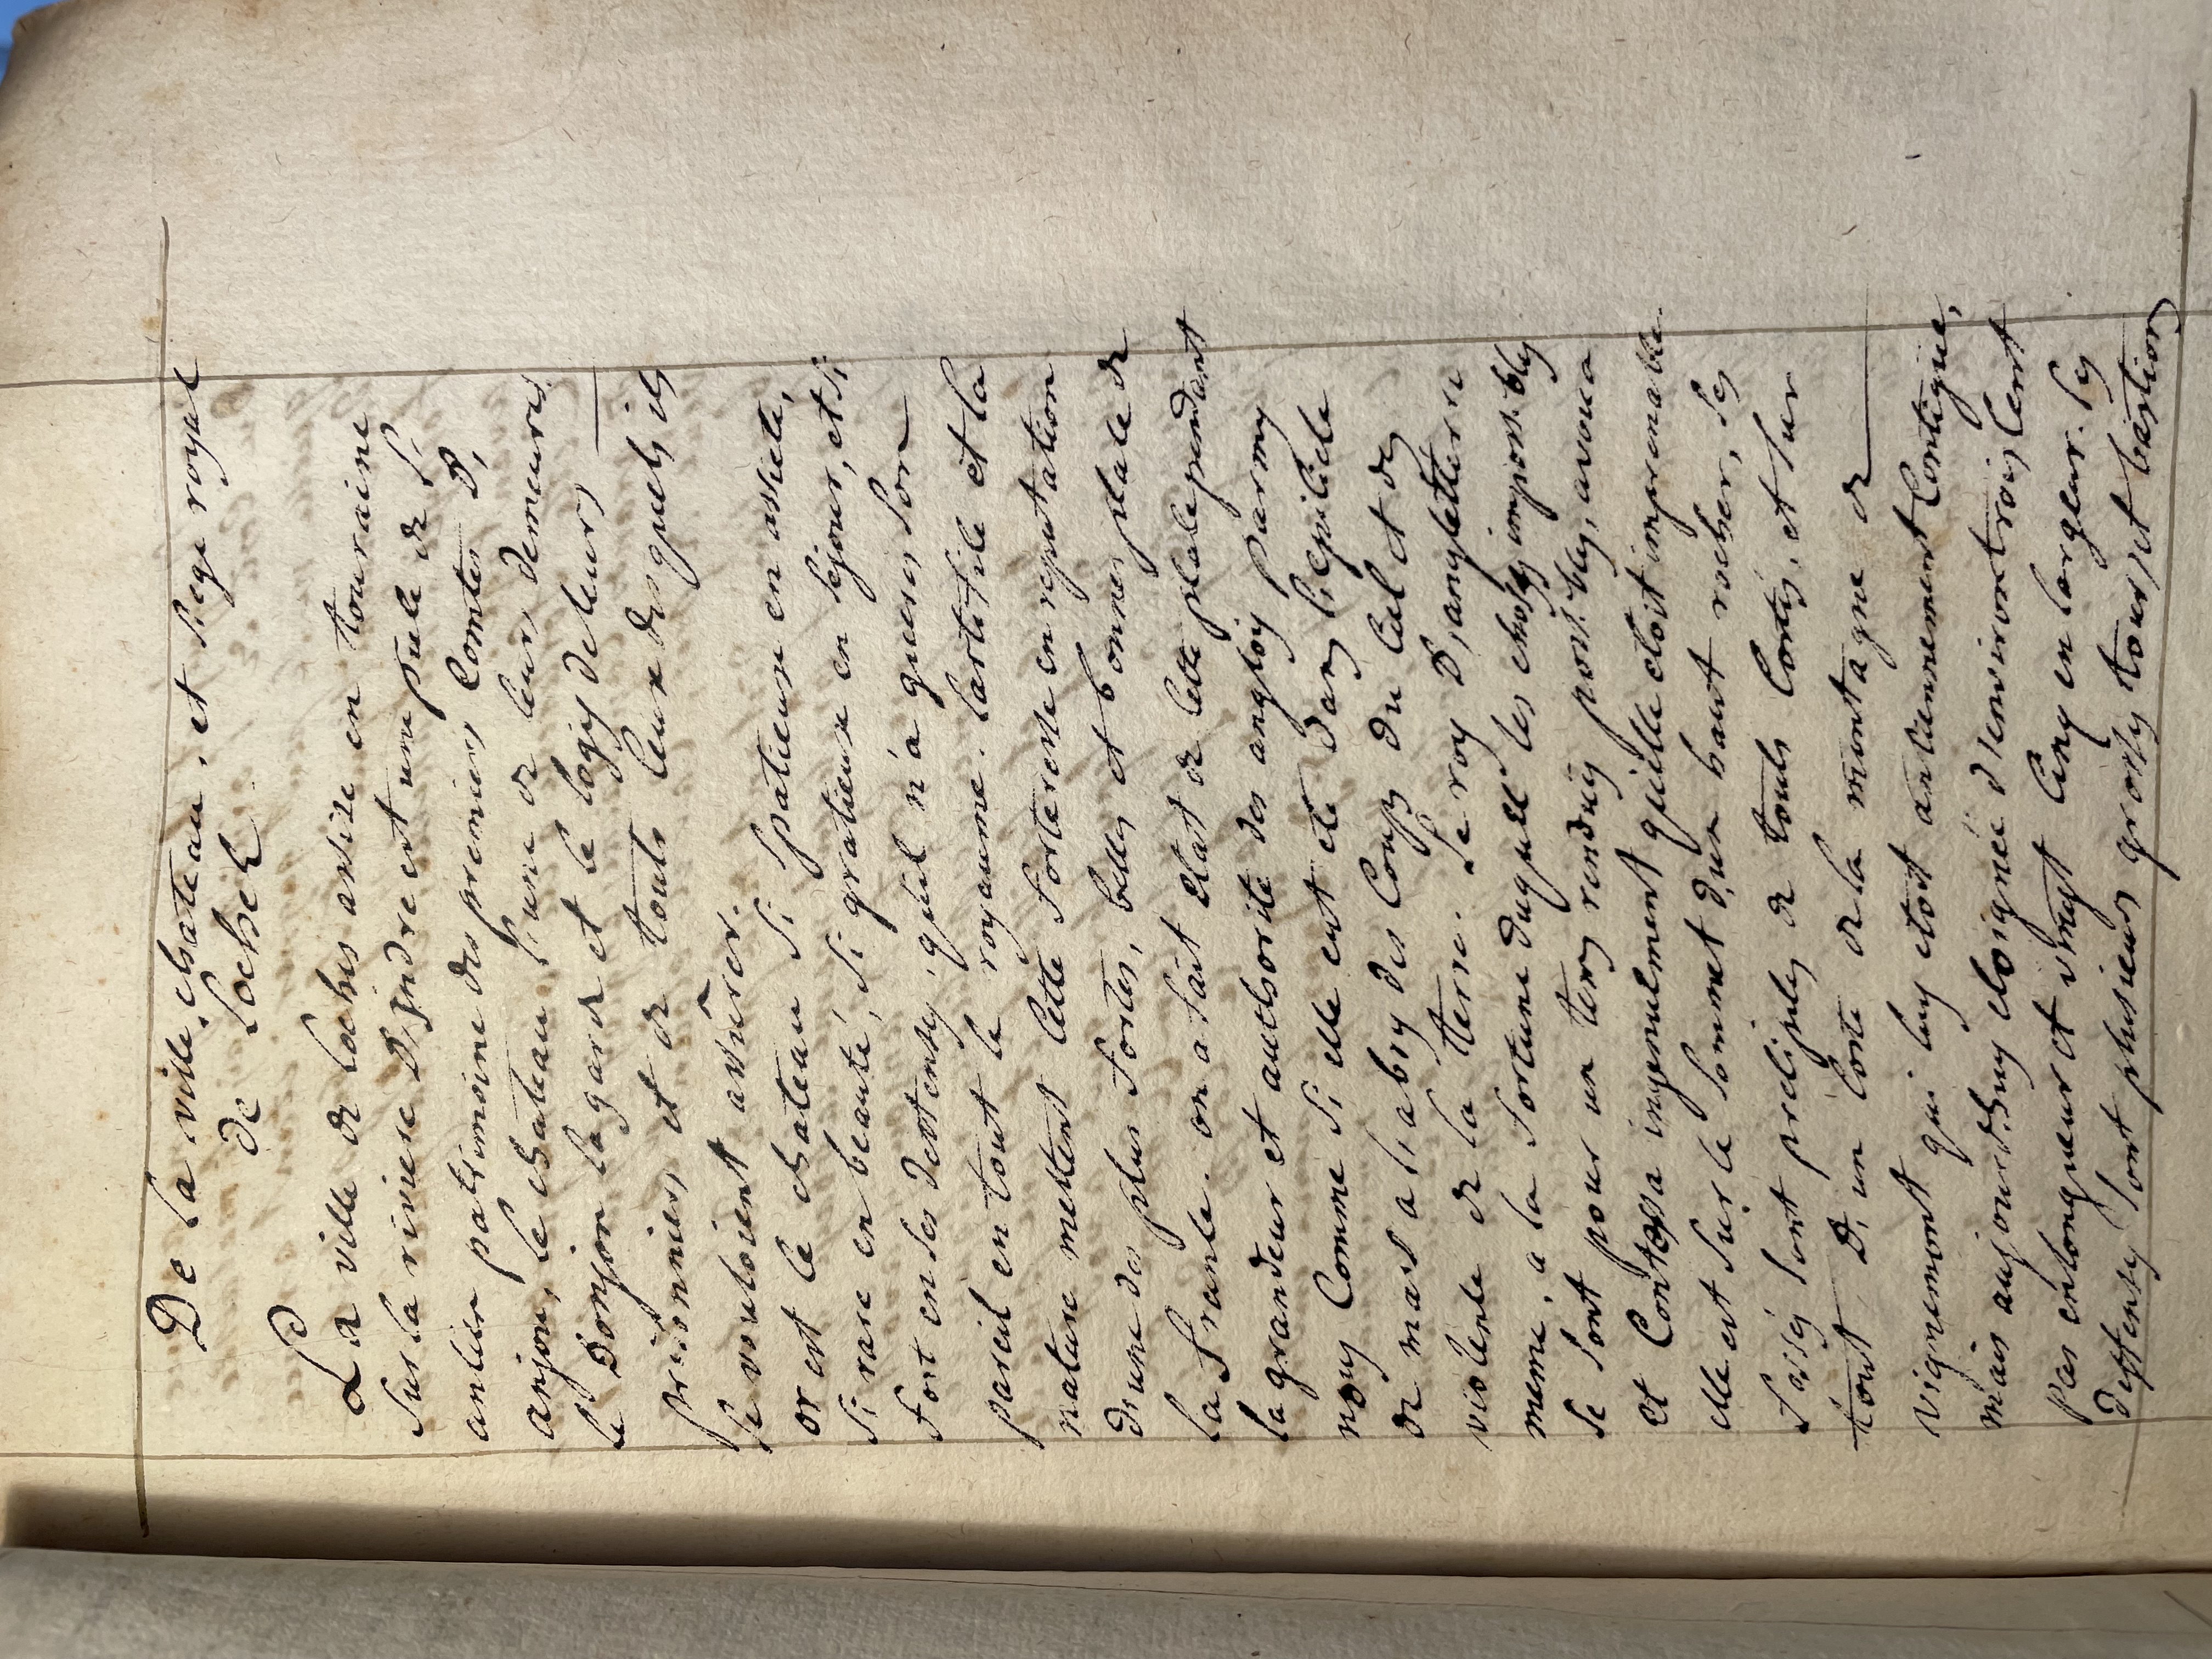 De la ville, chateau, et siege royal
de Loches
La ville de Loches assise en touraine
sur la riviere D'Indre est une piece de l'
antien patrimoine des premiers Comtes D'
anjou, le chateau l'une de leurs demeures
le Donjon la garde et le logis de leurs
prisonniers et de touts ceux desquels ils
se vouloient assurer.
or est le chateau si spatieux en assiete,
si rare en beauté, si gratieux en sejour, et si
fort en ses deffenses, qu'il n'a gueres son
pareil en tout le royaume. l'artifice et la
nature mettent cette forteresse en reputation
d'une des plus fortes, belles et bonnes place de
la france. on a fait etat de cette place pendant
la grandeur et authorité des anglois parmy
nous Comme si elle eut eté dans l'epicicle
de mars a l'abry des Coups du Ciel et des
violence de la terre. le roy D'angleterre
meme, a la fortune duquel les choses impossibles
se sont pour un tems rendues possibles, avoua
et Confessa ingenument qu'elle etoit imprenable.
elle est sur le sommet d'un haut rocher, ses
fossés sont precipices de touts Cotés, et sur
tout D'un Coté de la montagne de
vignemont qui luy etoit antiennement Contigue,
mais aujourdhuy eloignée d'environ trois Cent
pas en longueur et vingt Cinq en largeur. ses
deffenses sont plusieurs grosses tours et bastions